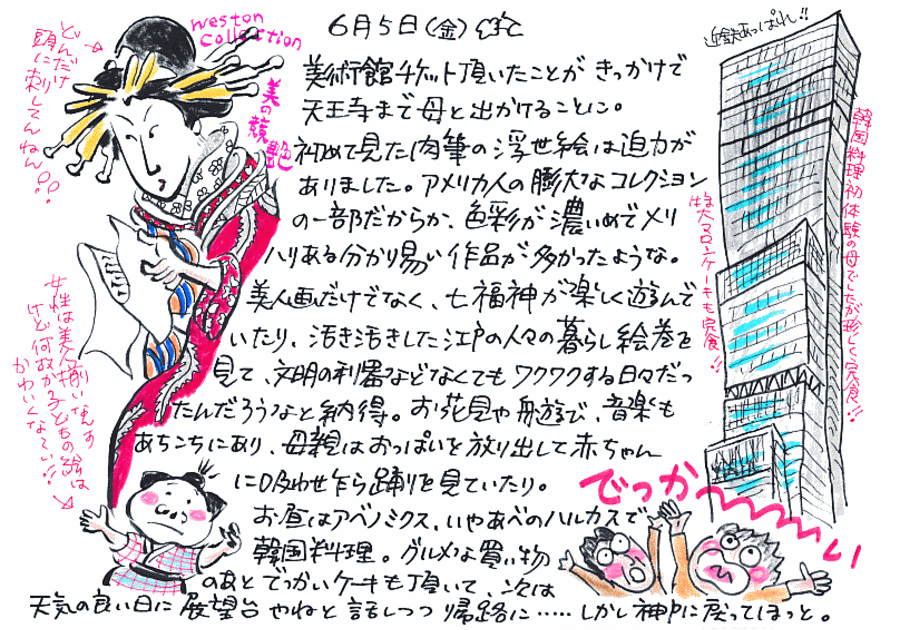 6月5日(金)
Weston
Collection
美の競艶
どんだけ
頭に刺
してんねん
美術館チケット頂いたことが きっかけで
天王寺まで母と出かけることに。
初めて見た肉筆の浮世絵は迫力が
ありました。アメリカ人の膨大なコレクション
の一部だからか、色彩が濃いめでメリ
ハリある分かり易い作品が多かったような。
美人画だけでなく、七福神が楽しく遊んで
いたり、活き活きした江戸の人々の暮らし絵巻を
見て、文明の利器などなくてもワクワクする日々だっ
たんだろうなと納得。お花見や舟遊び、音楽も
あちこちにあり、母親はおっぱいを放り出して赤ちゃん
に吸わせ乍ら踊りを見ていたり。
お昼はアベノミクス、いやあべのハルカスで
韓国料理。グルメな買い物
のあとでっかいケーキも頂いて、次は
天気の良い日に展望台やねと話しつつ 帰路に…… しかし神戸に戻ってほっと。
女性は美人揃いなんす
けど何故か子どもの絵は
かわいくな〜い!!
近鉄あっぱれ!!
韓国料理初体験の母でしたが珍しく完食!!
マロンケーキも完食!!
でっか〜〜い